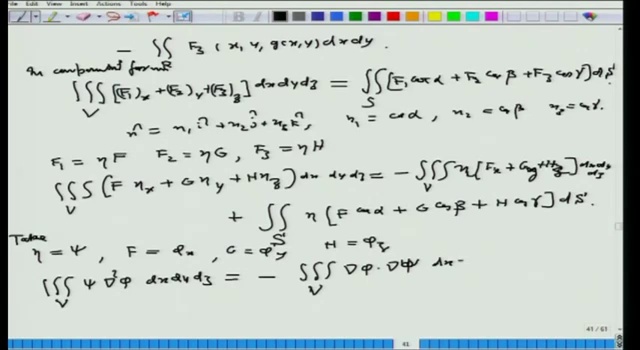 Edit View Insert Actions Tools Help
- ∬_R F₃ (x, y, g(x,y)) dx dy.
In component form
∭_V [(F₁)_x + (F₂)_y + (F₃)_z] dx dy dz = ∬_S [F₁ cos α + F₂ cos β + F₃ cos γ] dS
n̂ = n₁ î + n₂ ĵ + n₃ k̂, n₁ = cos α, n₂ = cos β n₃ = cos γ.
F₁ = ηF F₂ = ηG, F₃ = ηH
∭_V (F η_x + G η_y + H η_z) dx dy dz = - ∭_V η [F_x + G_y + H_z] dx dy dz
+ ∬_S η [F cos α + G cos β + H cos γ] dS.
Take
η = ψ, F = φ_x, G = φ_y H = φ_z
∭_V ψ ∇²φ dx dy dz = - ∭_V ∇φ · ∇ψ dx
41 / 61
41